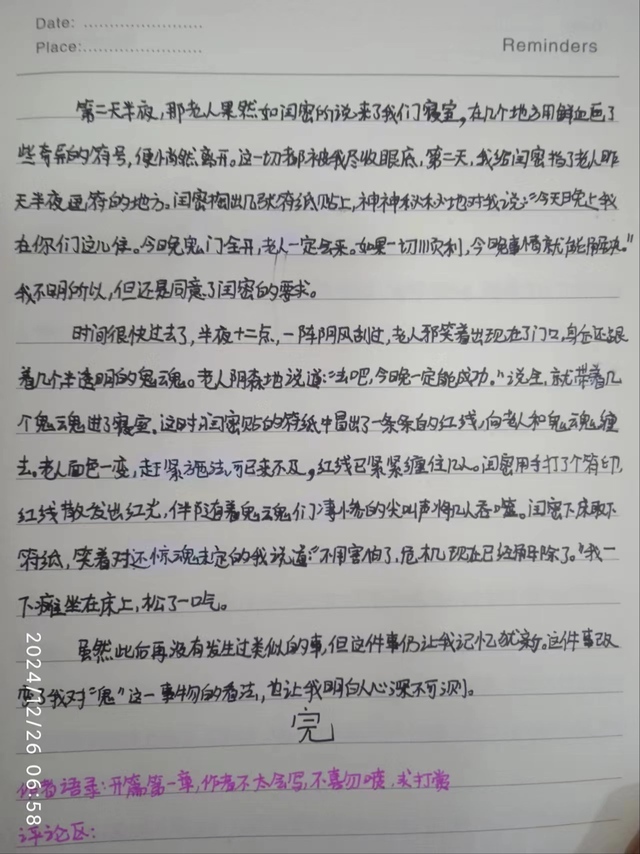 Date: ........................
Place:........................
Reminders
第二天半夜，那老人果然如闺密所说来了我们寝室，在几个地方用鲜血画了
些奇异的符号，便悄然离开。这一切都被我尽收眼底，第二天，我给闺密指了老人昨
天半夜画符的地方。闺密掏出几张符纸贴上，神神秘秘地对我说："今天晚上我
在你们这儿住。今日晚鬼门全开，老人一定会来。如果一切顺利，今晚事情就能解决。"
我不明所以，但还是同意了闺密的要求。
时间很快过去了，半夜十二点，一阵阴风刮过，老人邪笑着出现在了门口，身后还跟
着几个半透明的鬼魂。老人阴森地说道："去吧，今日晚一定能成功。"说完，就带着几
个鬼魂进了寝室。这时闺密贴的符纸中冒出了一条条的红线，向老人和鬼魂缠
去。老人面色一变，赶紧施法，可已来不及，红线已紧紧缠住几人。闺密用手打了个符印，
红线散发出红光，伴随着鬼魂们凄惨的尖叫声将几人吞噬。闺密下床取下
符纸，笑着对还惊魂未定的我说道："不用害怕了，危机现在已经解除了。"我一
下瘫坐在床上，松了一口气。
虽然此后再没有发生过类似的事，但这件事仍让我记忆犹新。这件事改
变了我对"鬼"这一事物的看法，也让我明白人心深不可测。
完
作者语录：开篇第一章，作者不太会写，不喜勿喷，求打赏
评论区：
2024/12/26 06:58